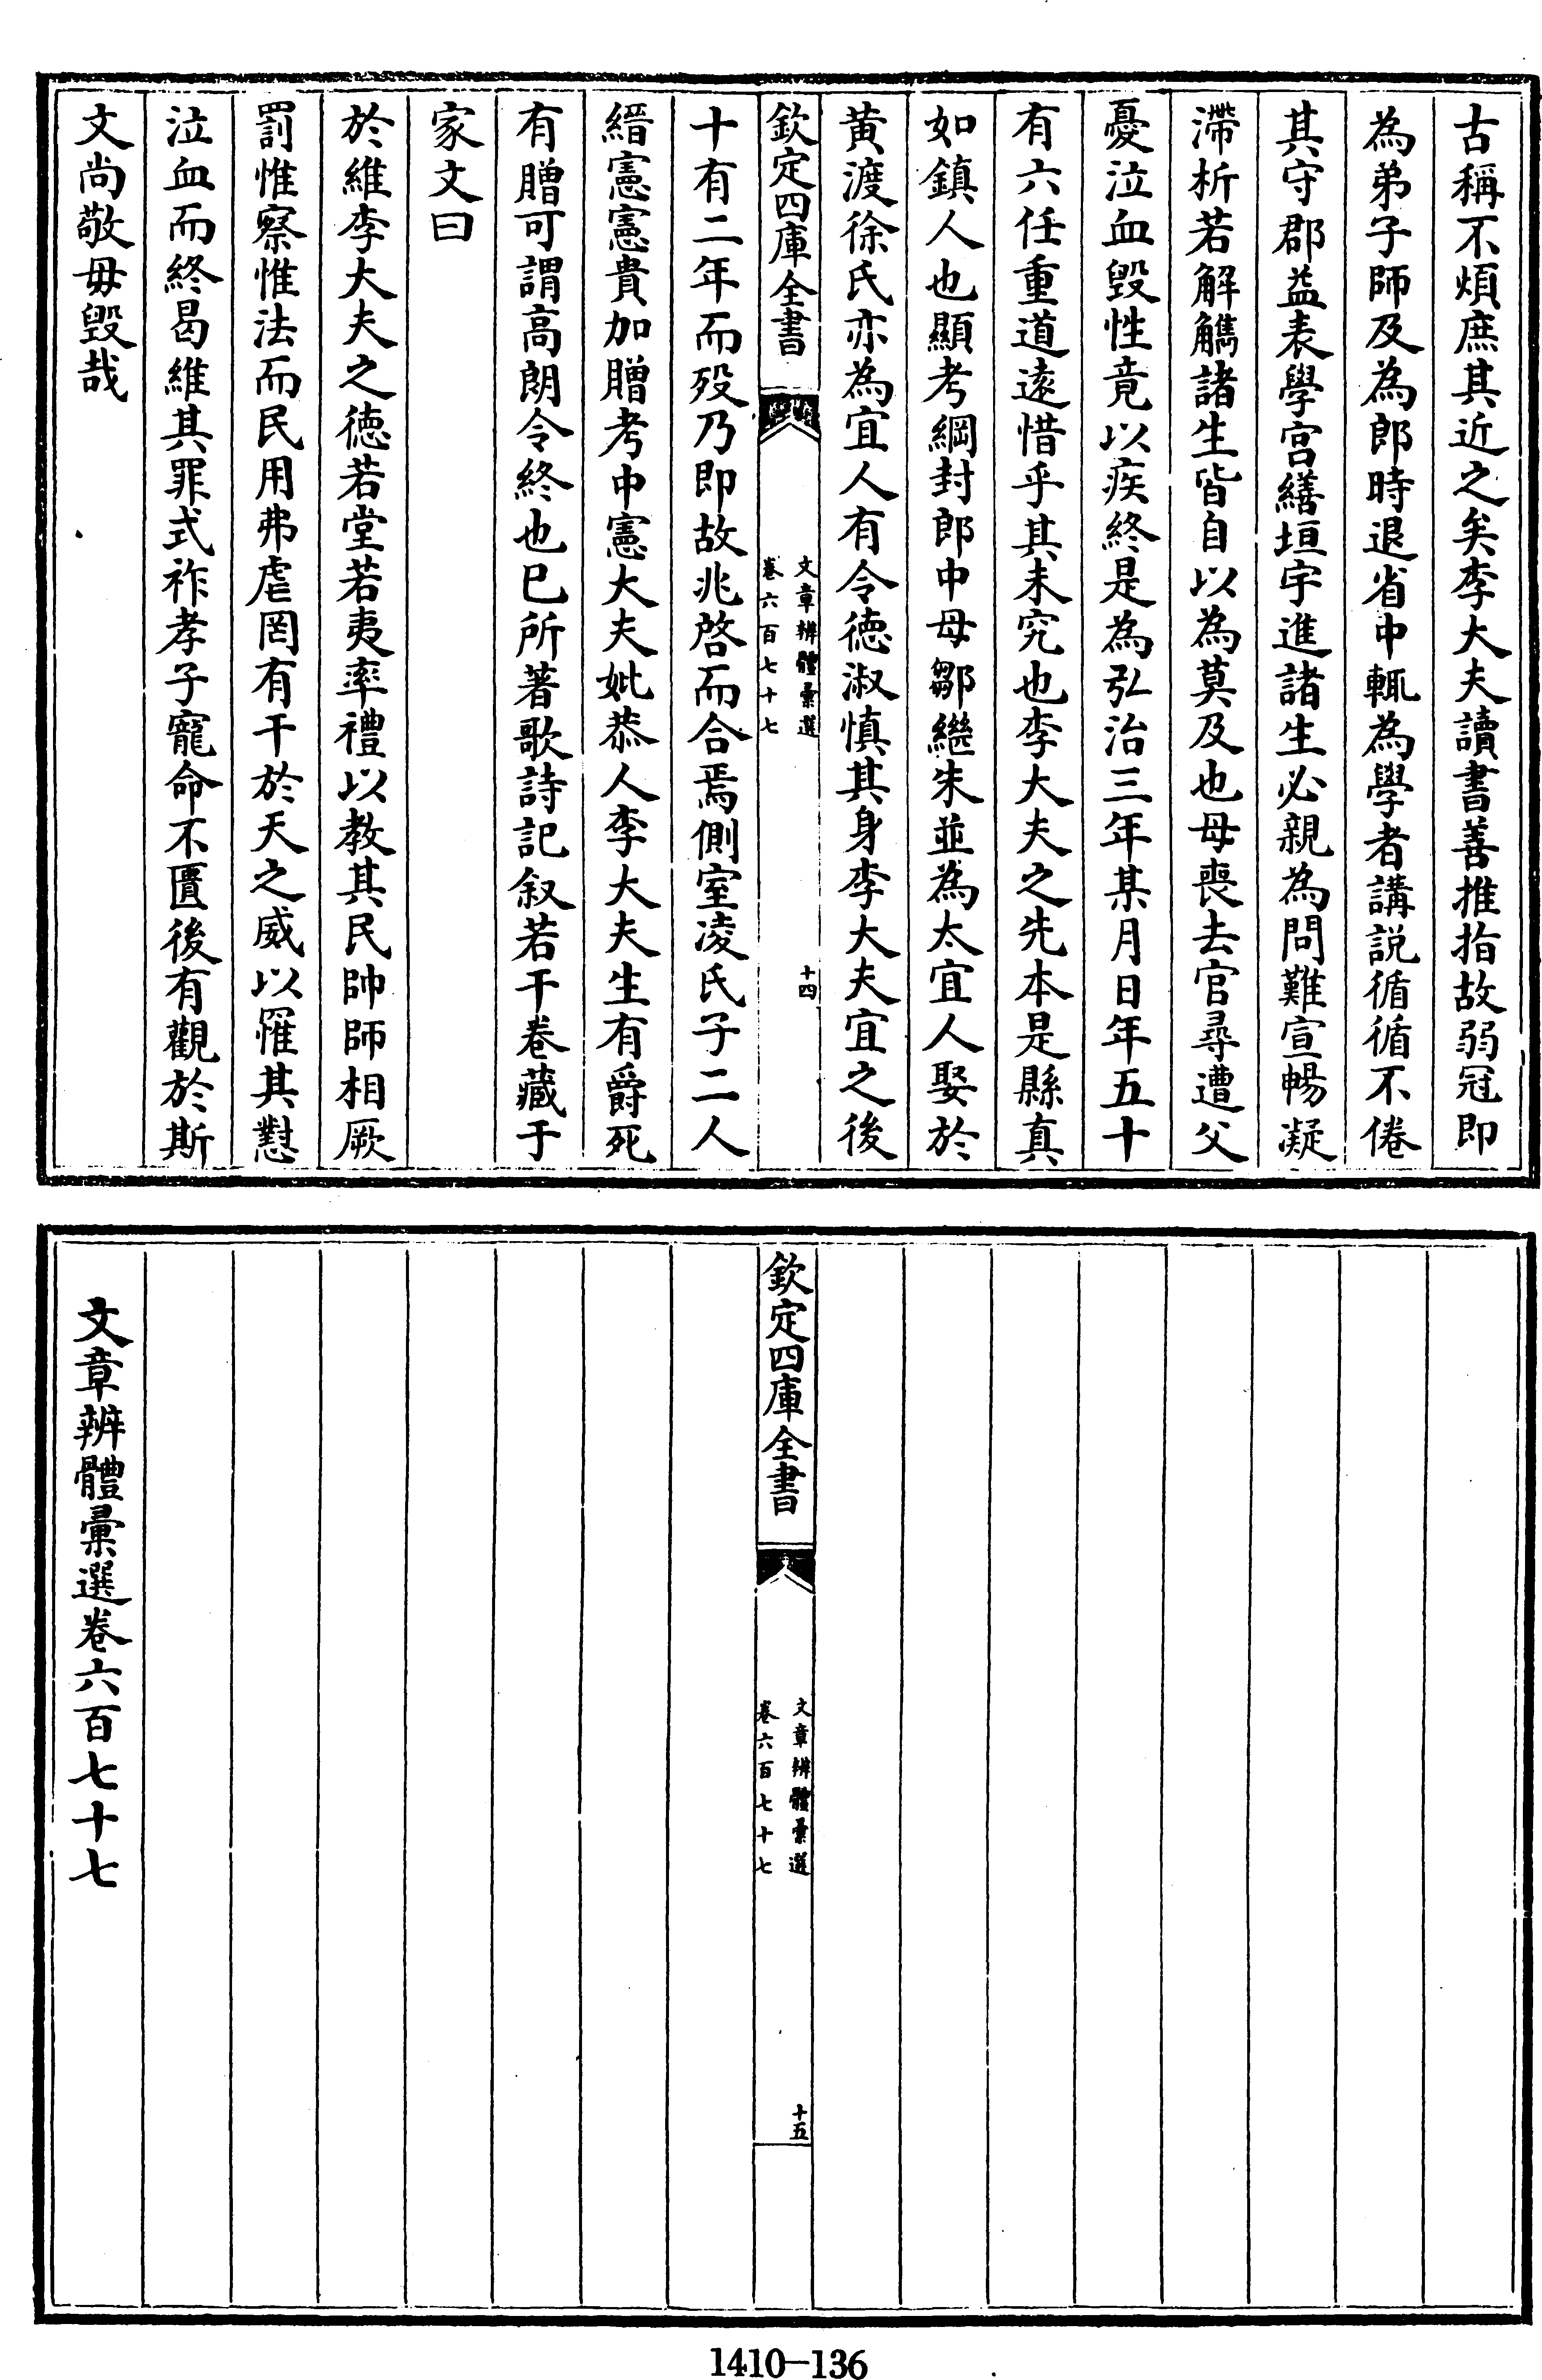 古稱不煩庶其近之矣李大夫讀書善推指故弱冠即
為弟子師及為郎時退省中輒為學者講説循循不倦
其守郡益表學宮繕垣宇進諸生必親為問難宣暢凝
滯析若解觿諸生皆自以為莫及也母喪去官尋遭父
憂泣血毀性竟以疾終是為弘治三年某月日年五十
有六任重道遠惜乎其未究也李大夫之先本是縣真
如鎮人也顯考綱封郎中母鄒繼朱並為太宜人娶於
黄渡徐氏亦為宜人有令德淑慎其身李大夫宜之後
欽定四庫全書
文章辨體彙選
卷六百七十七
十四
十有二年而歿乃即故兆啓而合焉側室凌氏子二人
縉憲憲貴加贈考中憲大夫妣恭人李大夫生有爵死
有贈可謂高朗令終也巳所著歌詩記叙若干卷藏于
家文曰
於維李大夫之德若堂若夷率禮以教其民帥師相厥
罰惟察惟法而民用弗虐罔有干於天之威以罹其懟
泣血而終曷維其罪式祚孝子寵命不匱後有觀於斯
文尚敬毋毀哉
欽定四庫全書
文章辨體彙選
卷六百七十七
十五
文章辨體彙選卷六百七十七
1410-136